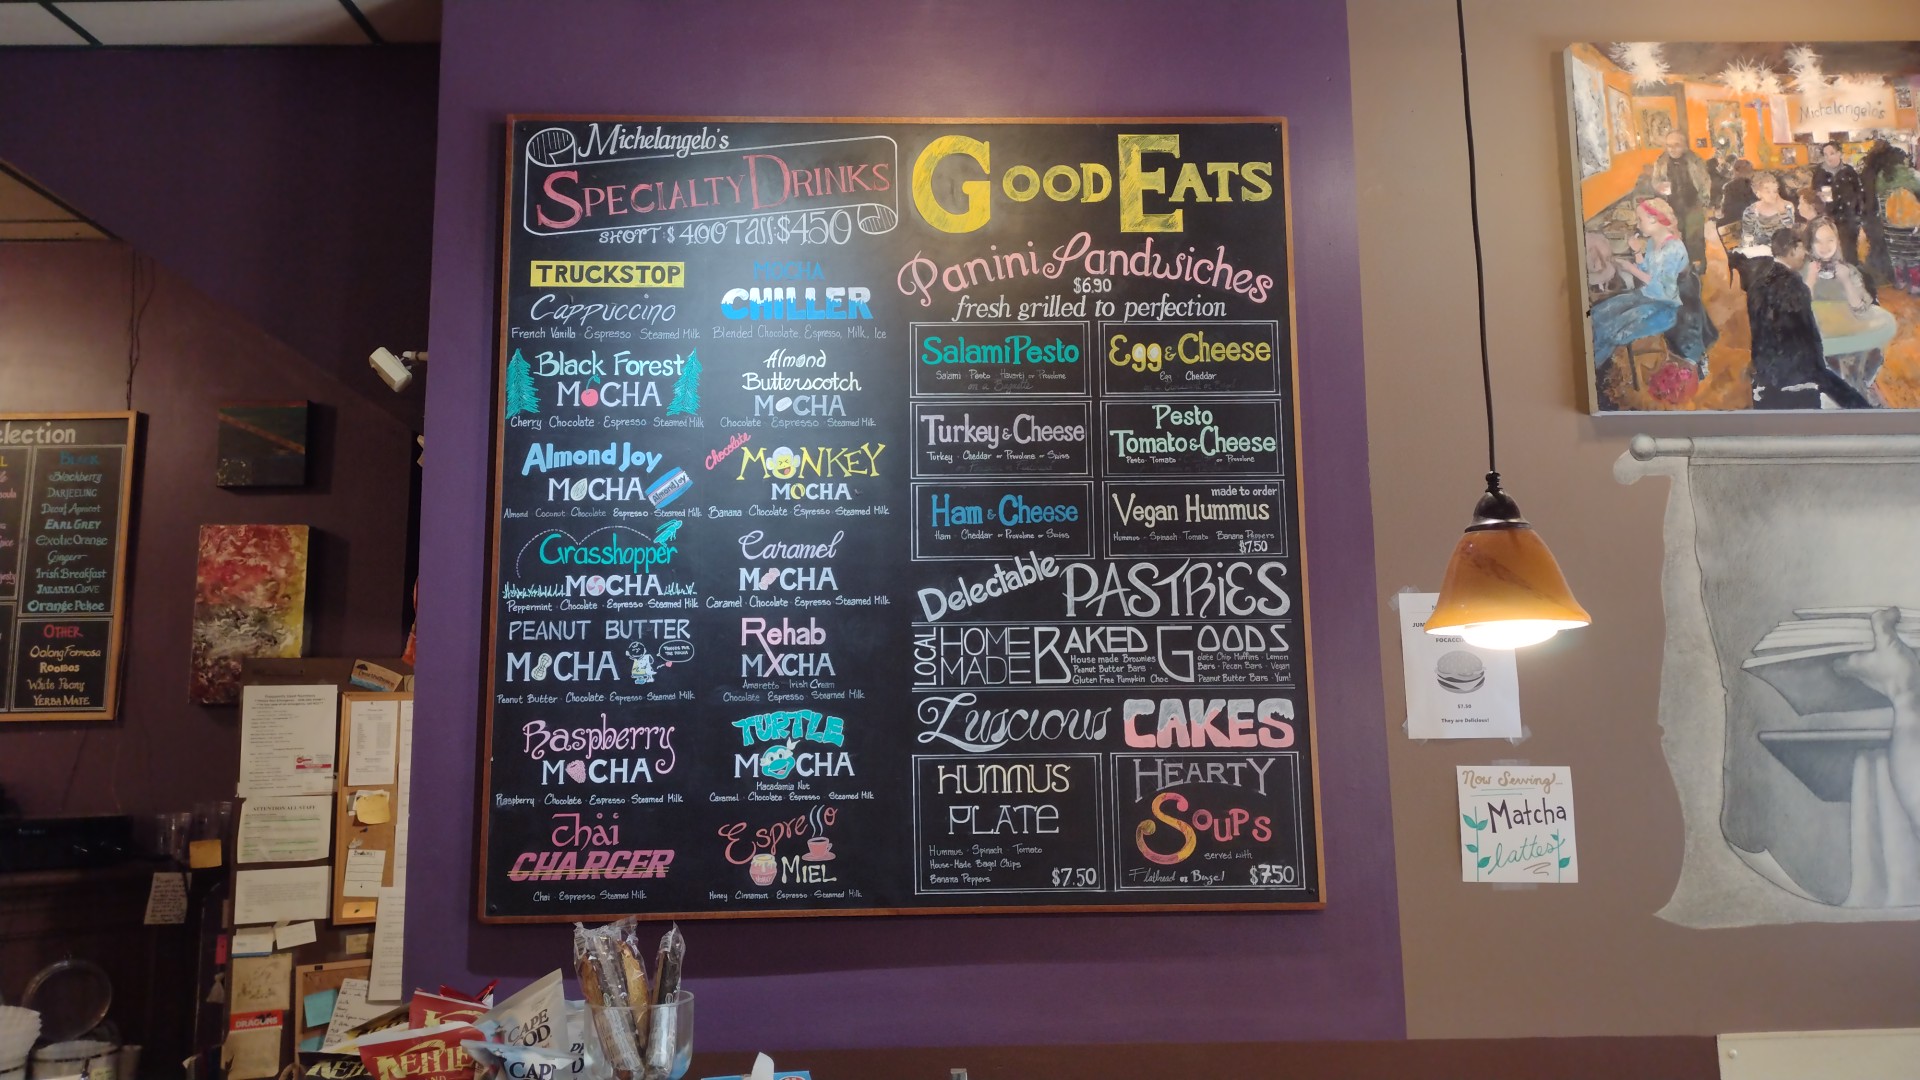 election
Blackberry
DARJEELING
Decaf Apricot
EARL GREY
Exotic Orange
Ginger
Irish Breakfast
JAKARTA CLOVE
Orange Pekoe
OTHER
Oolong Formosa
ROOIBOS
White Peony
YERBA MATE
ATTENTION ALL STAFF
Michelangelo's
SPECIALTY DRINKS
SHORT $4.00 Tall $4.50
TRUCKSTOP
Cappuccino
French Vanilla Espresso Steamed Milk
MOCHA
CHILLER
Blended Chocolate, Espresso, Milk, Ice
Black Forest
MOCHA
Cherry Chocolate Espresso Steamed Milk
Almond
Butterscotch
MOCHA
Chocolate Espresso Steamed Milk
Almond Joy
MOCHA
Almond Joy
Almond Coconut Chocolate Espresso Steamed Milk
Chocolate
MONKEY
MOCHA
Banana Chocolate Espresso Steamed Milk
Grasshopper
MOCHA
Peppermint Chocolate Espresso Steamed Milk
Caramel
MOCHA
Caramel Chocolate Espresso Steamed Milk
PEANUT BUTTER
MOCHA
Peanut Butter Chocolate Espresso Steamed Milk
Rehab
MXCHA
Amaretto Irish Cream
Chocolate Espresso Steamed Milk
Raspberry
MOCHA
Raspberry Chocolate Espresso Steamed Milk
TURTLE
MOCHA
Macadamia Nut
Caramel Chocolate Espresso Steamed Milk
Chai
CHARGER
Chai Espresso Steamed Milk
Espresso
MIEL
Honey Cinnamon Espresso Steamed Milk
GOOD EATS
Panini Sandwiches
$6.90
fresh grilled to perfection
Salami Pesto
Salami Pesto Havarti or Provolone
on a Baguette
Egg & Cheese
Egg Cheddar
Turkey & Cheese
Turkey Cheddar or Provolone or Swiss
Pesto
Tomato & Cheese
Pesto Tomato or Provolone
Ham & Cheese
Ham Cheddar or Provolone or Swiss
made to order
Vegan Hummus
Hummus Spinach Tomato Banana Peppers
$7.50
Delectable PASTRIES
LOCAL HOME MADE BAKED GOODS
House made Brownies
Peanut Butter Bars
Gluten Free Pumpkin Choc
olate Chip Muffins Lemon
Bars Pecan Bars Vegan
Peanut Butter Bars Yum!
Luscious CAKES
HUMMUS
PLATE
Hummus Spinach Tomato
House-Made Bagel Chips
Banana Peppers
$7.50
HEARTY
SOUPS
served with
Flatbread or Bagel
$7.50
Michelangelo's
$7.50
They are Delicious!
Now Serving
Matcha
lattes
KETTLE
CAPE
COD
CAPE